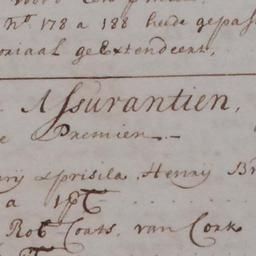 N.º 178 a 188 hiede gepass
oriaal geExtendeert,
Assurantien,
e Premien
ary & prisila, Henry Br
a 1
Rob.t Coats, van Cork